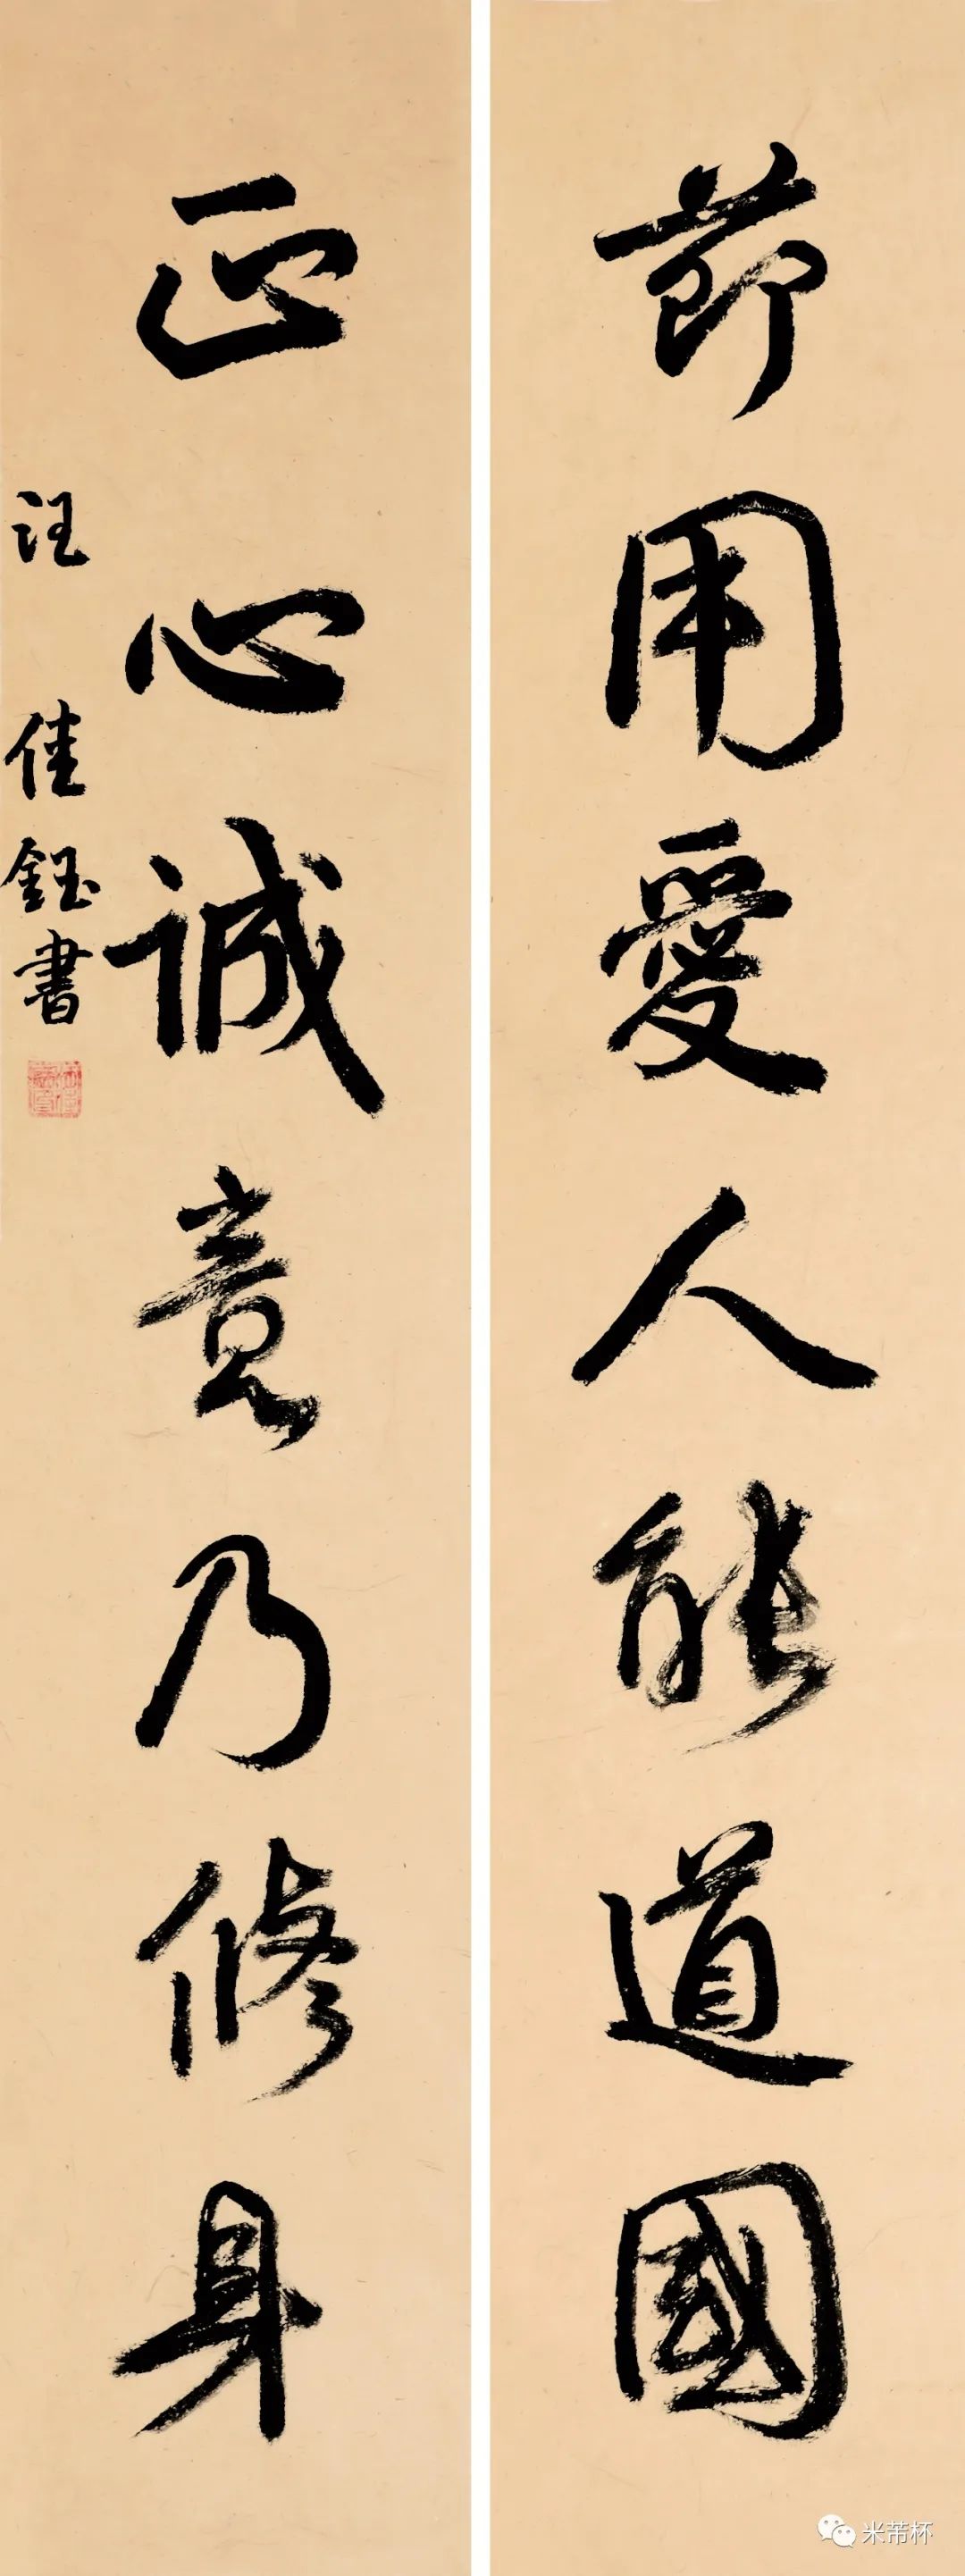 節用愛人能道國
正心誠意乃修身
汪佳鈺書
米芾杯